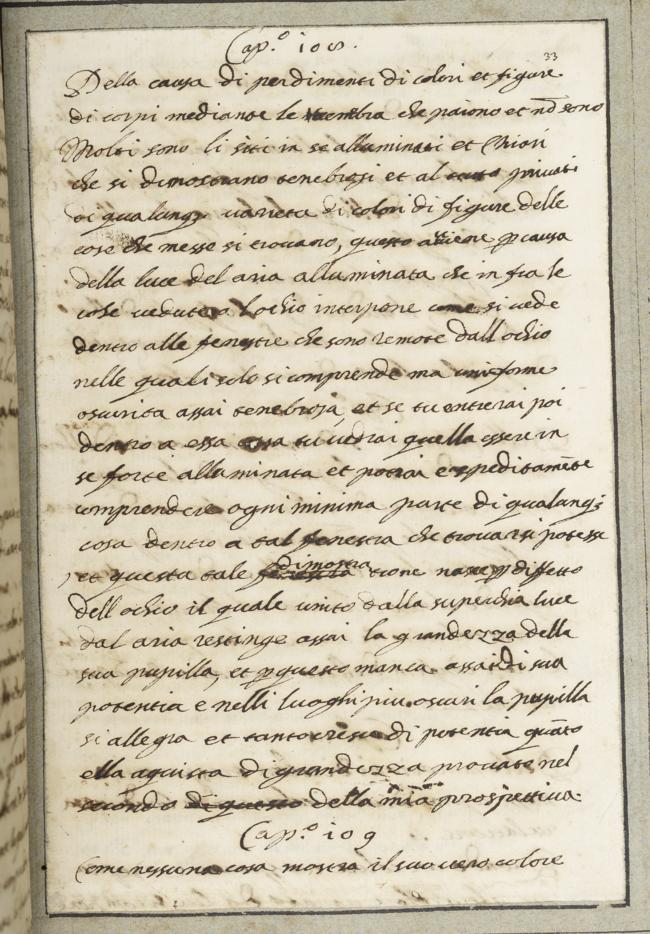 Cap.º 108.
33
Della causa di perdimenti di colori et figure
di corpi mediante le tenebra che paiono et nō sono
Molti sono li siti in se alluminati et chiari
che si dimostrano tenebrosi et al tutto privati
di qualunq; varieta di colori di figure delle
cose che messe si trovano, questo aviene ꝑ causa
della luce del aria alluminata che in fra le
cose vedute a lochio interpone come si vede
dentro alle fenestre che sono remote dall ochio
nelle quali solo si comprende ma uniforme
oscurita assai tenebrosa, et se tu entrerai poi
dentro a essa casa tu vedrai quella essere in
se forte alluminata et potrai espeditamēte
comprendere ogni minima parte di qualunq;
cosa dentro a tal fenestra che trovarsi potesse
et questa tale dimostra tione nasce ꝑ diffetto
dell ochio il quale vinto dalla superchia luce
dal aria restinge assai la grandezza della
sua pupilla, et ꝑ questo manca assai di sua
potentia e nelli luoghi piu oscuri la pupilla
si allegra et tanto cresce di potentia quāto
ella aquista di grandezza provato nel
secondo di questo della mia prospettiva
Cap.º 109
Come nessuna cosa mostra il suo vero colore